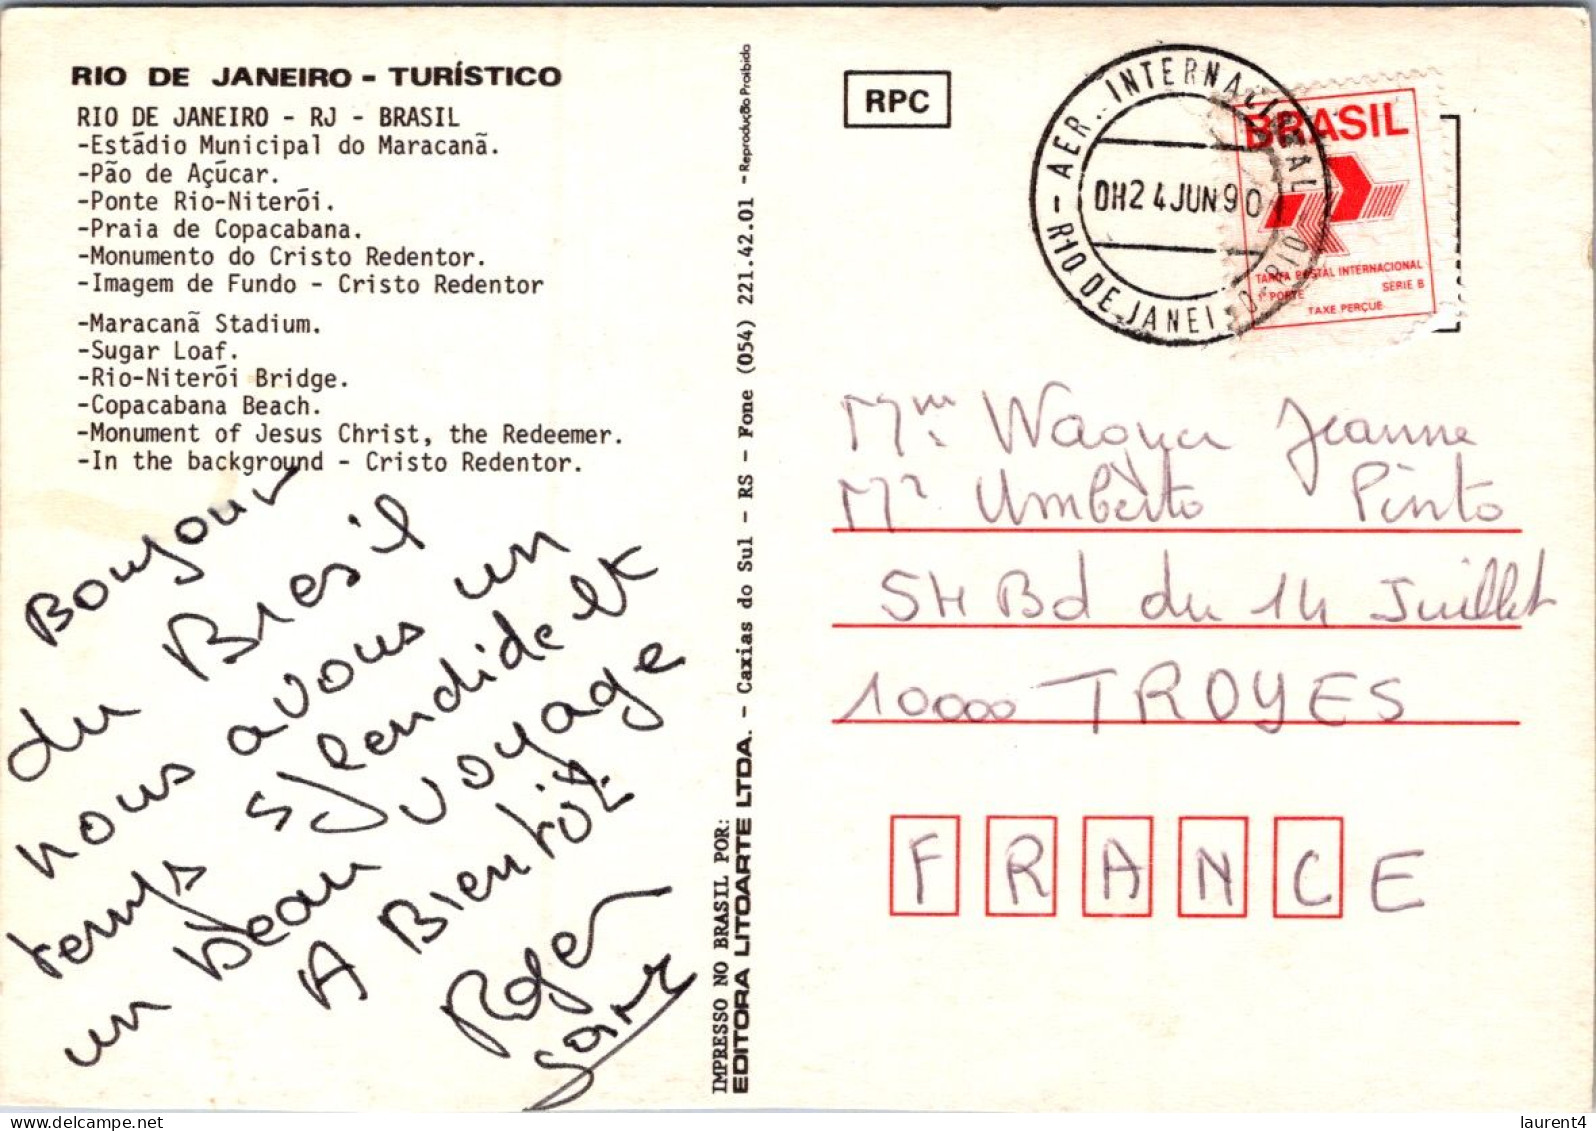 RIO DE JANEIRO - TURÍSTICO
RIO DE JANEIRO - RJ - BRASIL
-Estádio Municipal do Maracanã.
-Pão de Açúcar.
-Ponte Rio-Niterói.
-Praia de Copacabana.
-Monumento do Cristo Redentor.
-Imagem de Fundo - Cristo Redentor
-Maracanã Stadium.
-Sugar Loaf.
-Rio-Niterói Bridge.
-Copacabana Beach.
-Monument of Jesus Christ, the Redeemer.
-In the background - Cristo Redentor.
Bonjour
du Bresil
nous avons un
temps splendide et
un beau voyage
A Bientôt
Roger
IMPRESSO NO BRASIL POR:
EDITORA LITOARTE LTDA. - Caxias do Sul - RS - Fone (054) 221.42.01 - Reprodução Proibida
RPC
AER. INTERNACIONAL
0H24JUN90
RIO DE JANEI
BRASIL
TARIFA POSTAL INTERNACIONAL
1º PORTE SERIE B
TAXE PERÇUE
Mme Wagner Jeanne
Mr Umberto Pinto
54 Bd du 14 Juillet
10000 TROYES
FRANCE
www.delcampe.net
laurent4